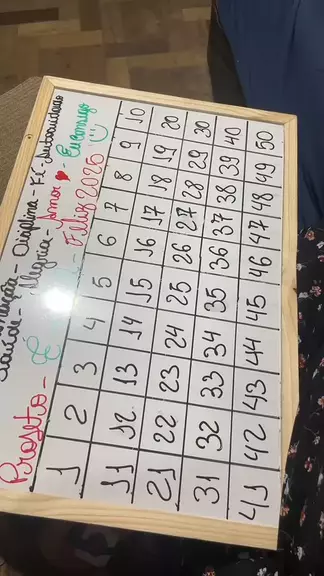 - Disciplina - Fé - Autocuidado
Saúde - Alegria - Amor - Eu consigo
Projeto - Feliz 2025
1 2 3 4 5 6 7 8 9 10
11 12 13 14 15 16 17 18 19 20
21 22 23 24 25 26 27 28 29 30
31 32 33 34 35 36 37 38 39 40
41 42 43 44 45 46 47 48 49 50